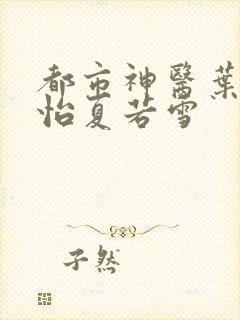 都市神醫葉
怡夏若雪
孑然